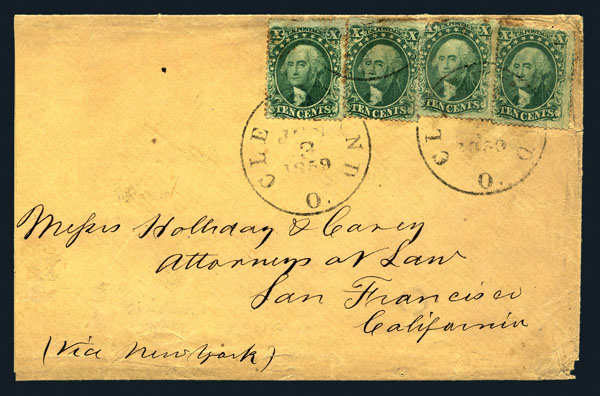 X U.S. POSTAGE X
TEN CENTS
X U.S. POSTAGE X
TEN CENTS
X U.S. POSTAGE X
TEN CENTS
X U.S. POSTAGE X
TEN CENTS
CLE ND
2
1859
O.
CL D
1859
O.
Messrs Holliday & Carey
Attorneys at Law
San Francisco
California
(Via New York)